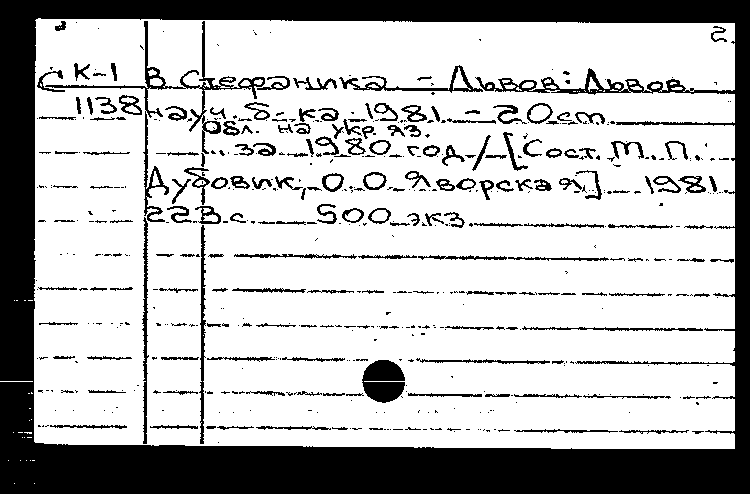 2.
С К-1 В Стефаника. - Львов: Львов.
1138 науч. б-ка, 1981. - 20 cm.
Обл. на укр. яз.
... за 1980 год / [Сост. М. П.
Дубовик, О. О. Яворская]. 1981.
223 с. 500 экз.